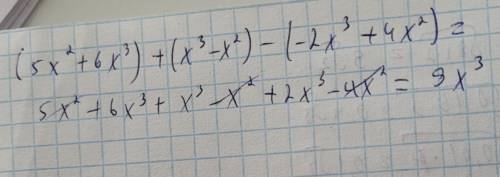 (5x² + 6x³) + (x³ - x²) - (-2x³ + 4x²) =
5x² + 6x³ + x³ - x² + 2x³ - 4x² = 9x³